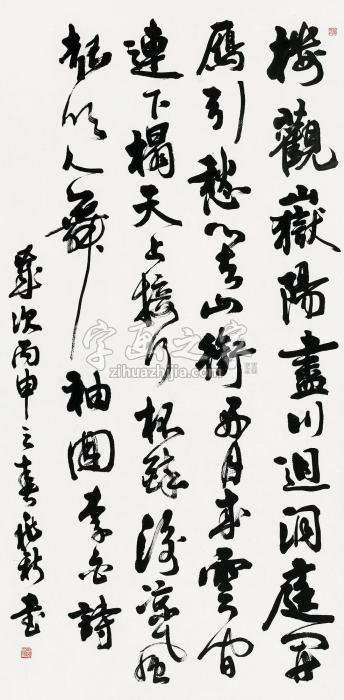 樓觀嶽陽盡川迴洞庭開
鴈引愁心去山銜好月來雲間
連下榻天上接行杯醉後涼風
人舞袖回李白詩
歲次丙申之春 書
字画之家
zihuazhijia.com